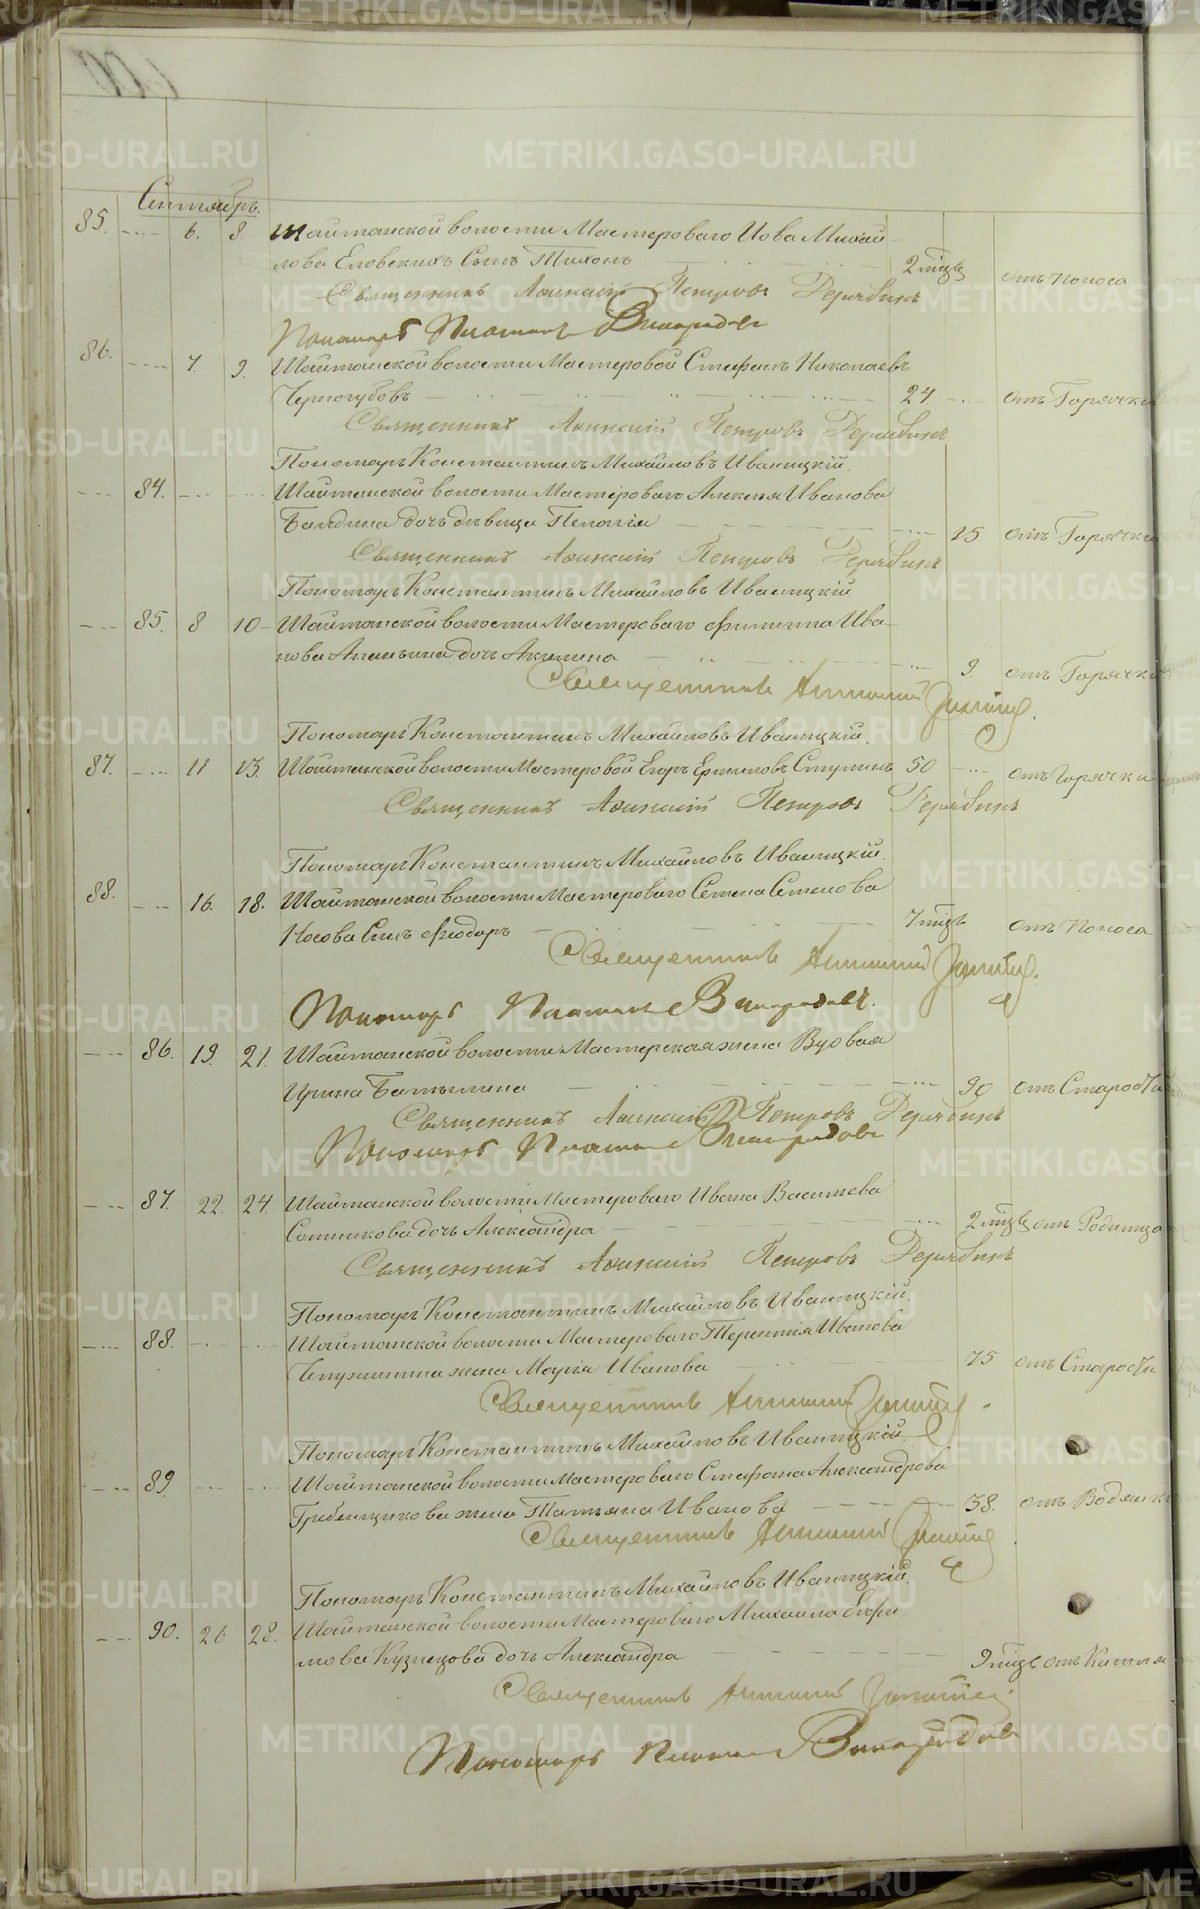 Сентябрь.
85. 6. 8. Шайтанской волости Мастероваго Иова Михай-
лова Еловскихъ Сынъ Тихонъ 2 мцъ отъ Поноса
Священникъ Петровъ Дерябинъ
Пономарь Платонъ Виноградовъ
86. 7. 9. Шайтанской волости Мастеровой Стефанъ Николаевъ
Черногубовъ 24 отъ Горячки
Священникъ Петровъ Дерябинъ
Пономарь Константинъ Михайловъ Иваницкій.
84. Шайтанской волости Мастероваго Алексея Иванова
дочь девица Пелагія 15 отъ Горячки
Священникъ Петровъ Дерябинъ
Пономарь Константинъ Михайловъ Иваницкій
85. 8 10 Шайтанской волости Мастероваго Филиппа Ива-
нова Ананьина дочь Акилина 9. отъ Горячки
Священникъ
Пономарь Константинъ Михайловъ Иваницкій.
87. 11 13. Шайтанской волости Мастеровой Егоръ Ермиловъ Ступинъ 50 отъ Горячки
Священникъ Петровъ Дерябинъ
Пономарь Константинъ Михайловъ Иваницкій.
88. 16. 18. Шайтанской волости Мастероваго Семена Семенова
Носова Сынъ Феодоръ 7 мцъ отъ Поноса
Священникъ
Пономарь Платонъ Виноградовъ.
86. 19. 21. Шайтанской волости Мастерская жена Вдовая
Ирина 90 отъ Старости
Священникъ Петровъ Дерябинъ
Пономарь Платонъ Виноградовъ
87. 22. 24. Шайтанской волости Мастероваго Ивана Васильева
дочь Александра 2 мцъ отъ Родимца
Священникъ Петровъ Дерябинъ
Пономарь Константинъ Михайловъ Иваницкій.
88. Шайтанской волости Мастероваго Терентія Иванова
жена Марія Иванова 75 отъ Старости
Священникъ
Пономарь Константинъ Михайловъ Иваницкій.
89. Шайтанской волости Мастероваго Стефана Александрова
Гребенщикова жена Татьяна Иванова 38. отъ Водянки
Священникъ
Пономарь Константинъ Михайловъ Иваницкій.
90. 26 28. Шайтанской волости Мастероваго Михаила
Кузнецова дочь Александра 9 мцъ отъ Кашля
Священникъ
Пономарь Платонъ Виноградовъ
METRIKI.GASO-URAL.RU